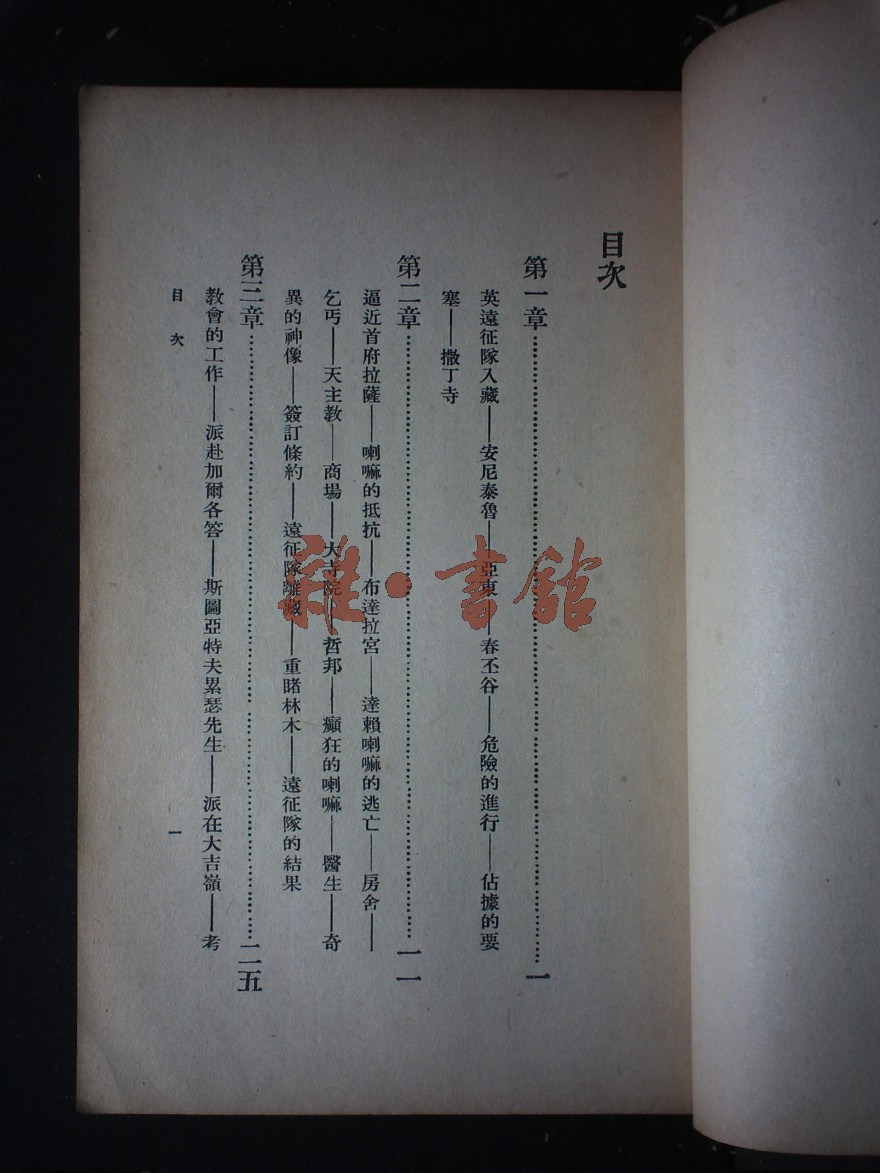 目次
第一章……一
英遠征隊入藏——安尼泰魯——亞東——春丕谷——危險的進行——佔據的要
塞——撒丁寺
第二章……一一
逼近首府拉薩——喇嘛的抵抗——布達拉宮——達賴喇嘛的逃亡——房舍——
乞丐——天主教——商場——大寺院——哲邦——癲狂的喇嘛——醫生——奇
異的神像——簽訂條約——遠征隊離藏——重睹林木——遠征隊的結果
第三章……二五
教會的工作——派赴加爾各答——斯圖亞特夫累瑟先生——派在大吉嶺——考
目次
一
雜·書館